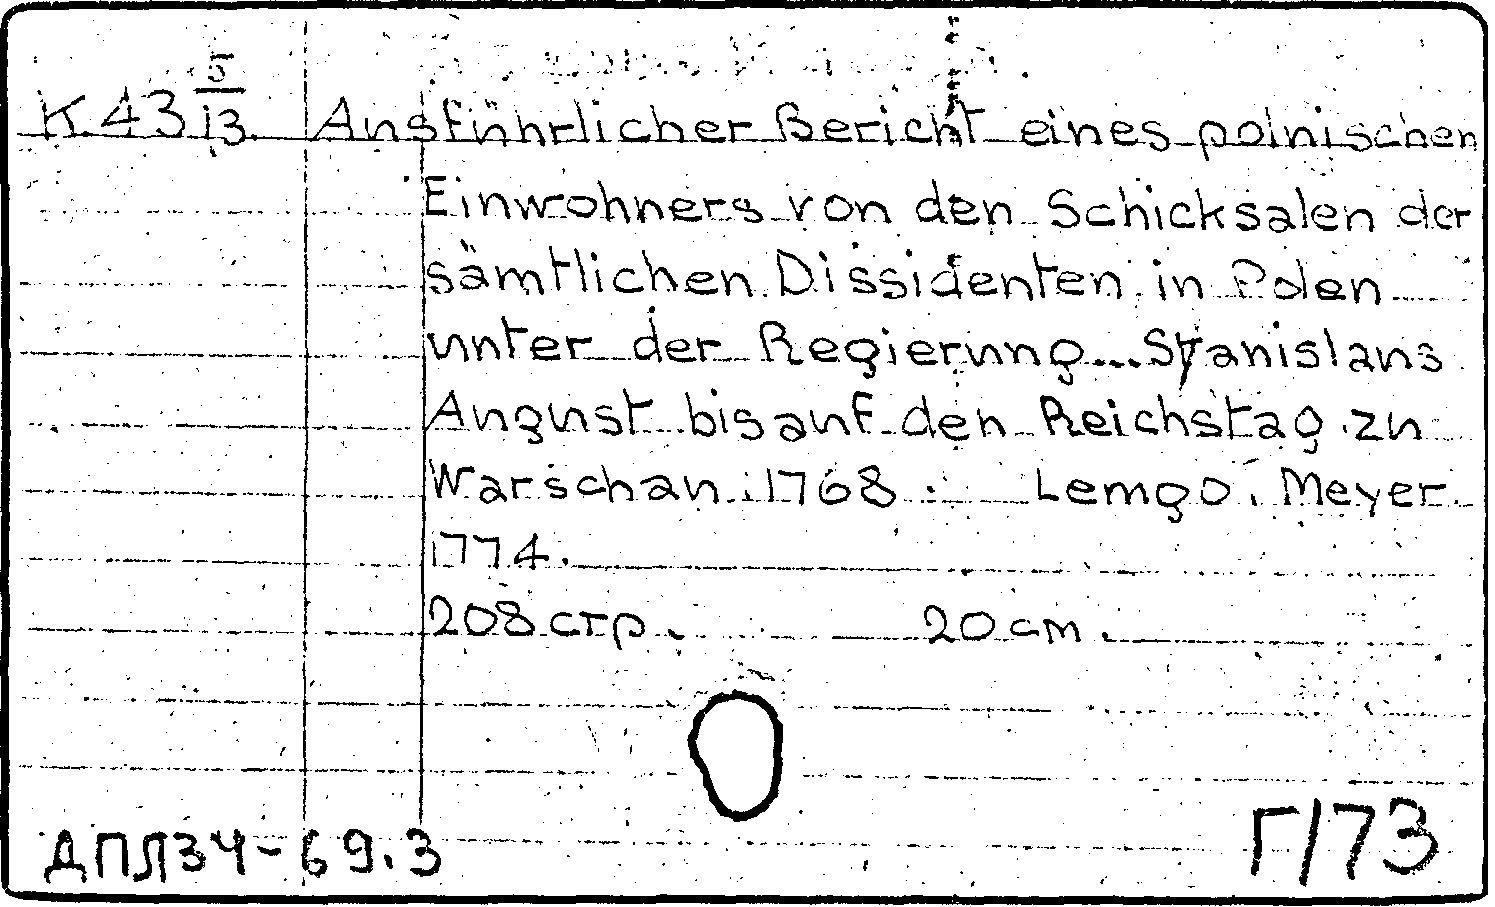 К.43 5/13. Ausführlicher Bericht eines polnischen
Einwohners von den Schicksalen der
sämtlichen Dissidenten in Polen
unter der Regierung... Stanislaus
August bis auf den Reichstag zu
Warschau 1768. Lemgo, Meyer
1774.
208 стр. 20 cm.
ДПЛЗЧ-69.3 Г/73